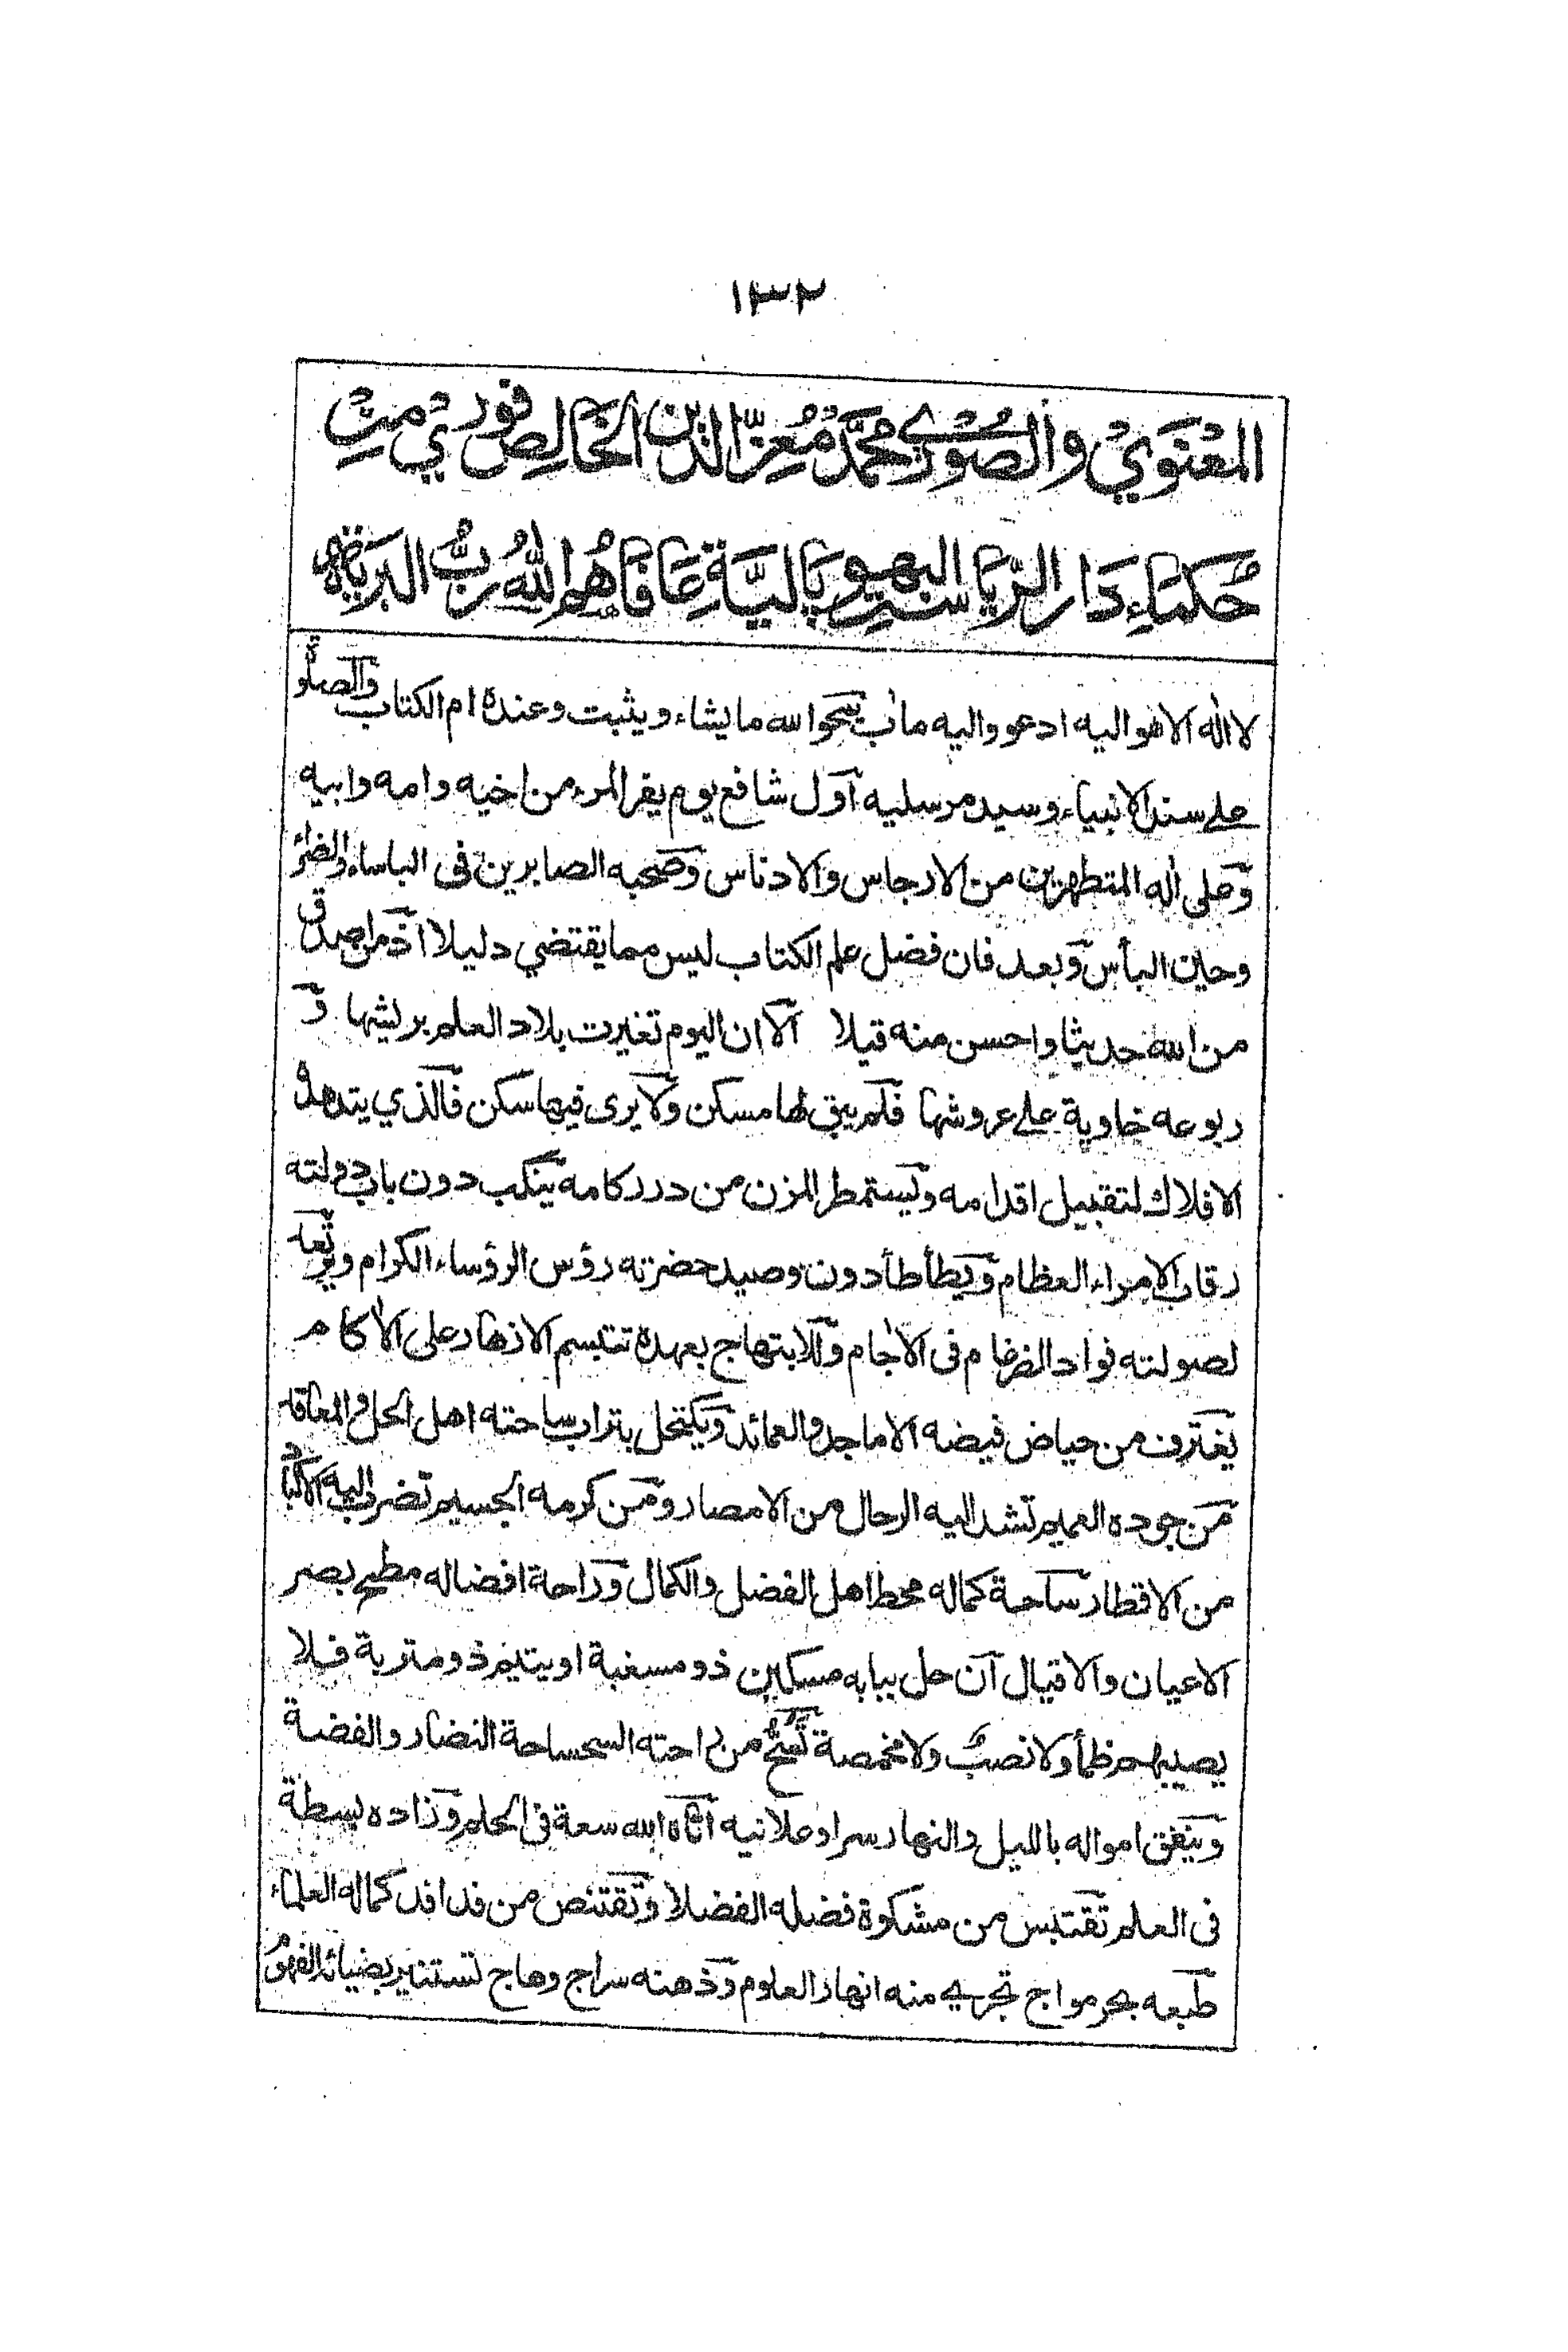 ١٣٢
المعْنَوِيْ والصُّوْرِيْ محمَّدْ مُعِزّ الدّين الخَالِصْ فورِيْ مِنْ
حُكَمَاءِ دَارِ الرِّيَاسَةِ البهوپَالِيَّةِ عَافَاهُم اللهُ رَبُّ البَرِيَّةِ
لا اله الا هو اليه ادعو واليه مآب يمحوا الله ما يشاء ويثبت وعنده ام الكتاب والصلوة
على سند الانبياء وسيد مرسليه اول شافع يوم يفر المرء من اخيه وامه وابيه
وعلى اله المتطهرين من الارجاس والادناس وصحبه الصابرين فى الباساء والضراء
وحين البأس وبعد فان فضل علم الكتاب ليس مما يقتضي دليلا اذ من اصدق
من الله حديثا واحسن منه قيلا الا ان اليوم تغيرت بلاد العلم برلشها و
ربوعه خاوية على عروشها فلم يبق لها مسكن ولا يرى فيها سكن فالذي يتدهده
الافلاك لتقبيل اقدامه وليستمطر المزن من درر كامه ينكب دون باب دولته
رقاب الامراء العظام ويطأطأ دون وصيد حضرته رؤس الرؤساء الكرام وترتعد
لصولته فواد الضرغام فى الاجام وللابتهاج بعهده تتبسم الازهار على الاكام
يغترف من حياض فيضه الاماجد والعمائد ويكتحل بتراب ساحته اهل الحل والمعاقد
من جوده العميم تشد اليه الرحال من الامصار ومن كرمه الجسيم تضرب اليه الاكباد
من الاقطار ساحة كماله محط اهل الفضل والكمال وراحة افضاله مطمح بصر
الاعيان والاقيال ان حل ببابه مسكين ذو مسغبة او يتيم ذو متربة فلا
يصيبهم ظمأ ولا نصب ولا مخمصة تسح من راحته السحساحة النضار والفضة
وينفق امواله بالليل والنهار سرا وعلانيه اتاه الله سعة فى الحلم وزاده بسطة
فى العلم تقتبس من مشكوة فضله الفضلا وتقتنص من فدافد كماله العلماء
طبعه بحر مواج تجري منه انهار العلوم وذهنه سراج وهاج تستنير بضيائه الفهوم